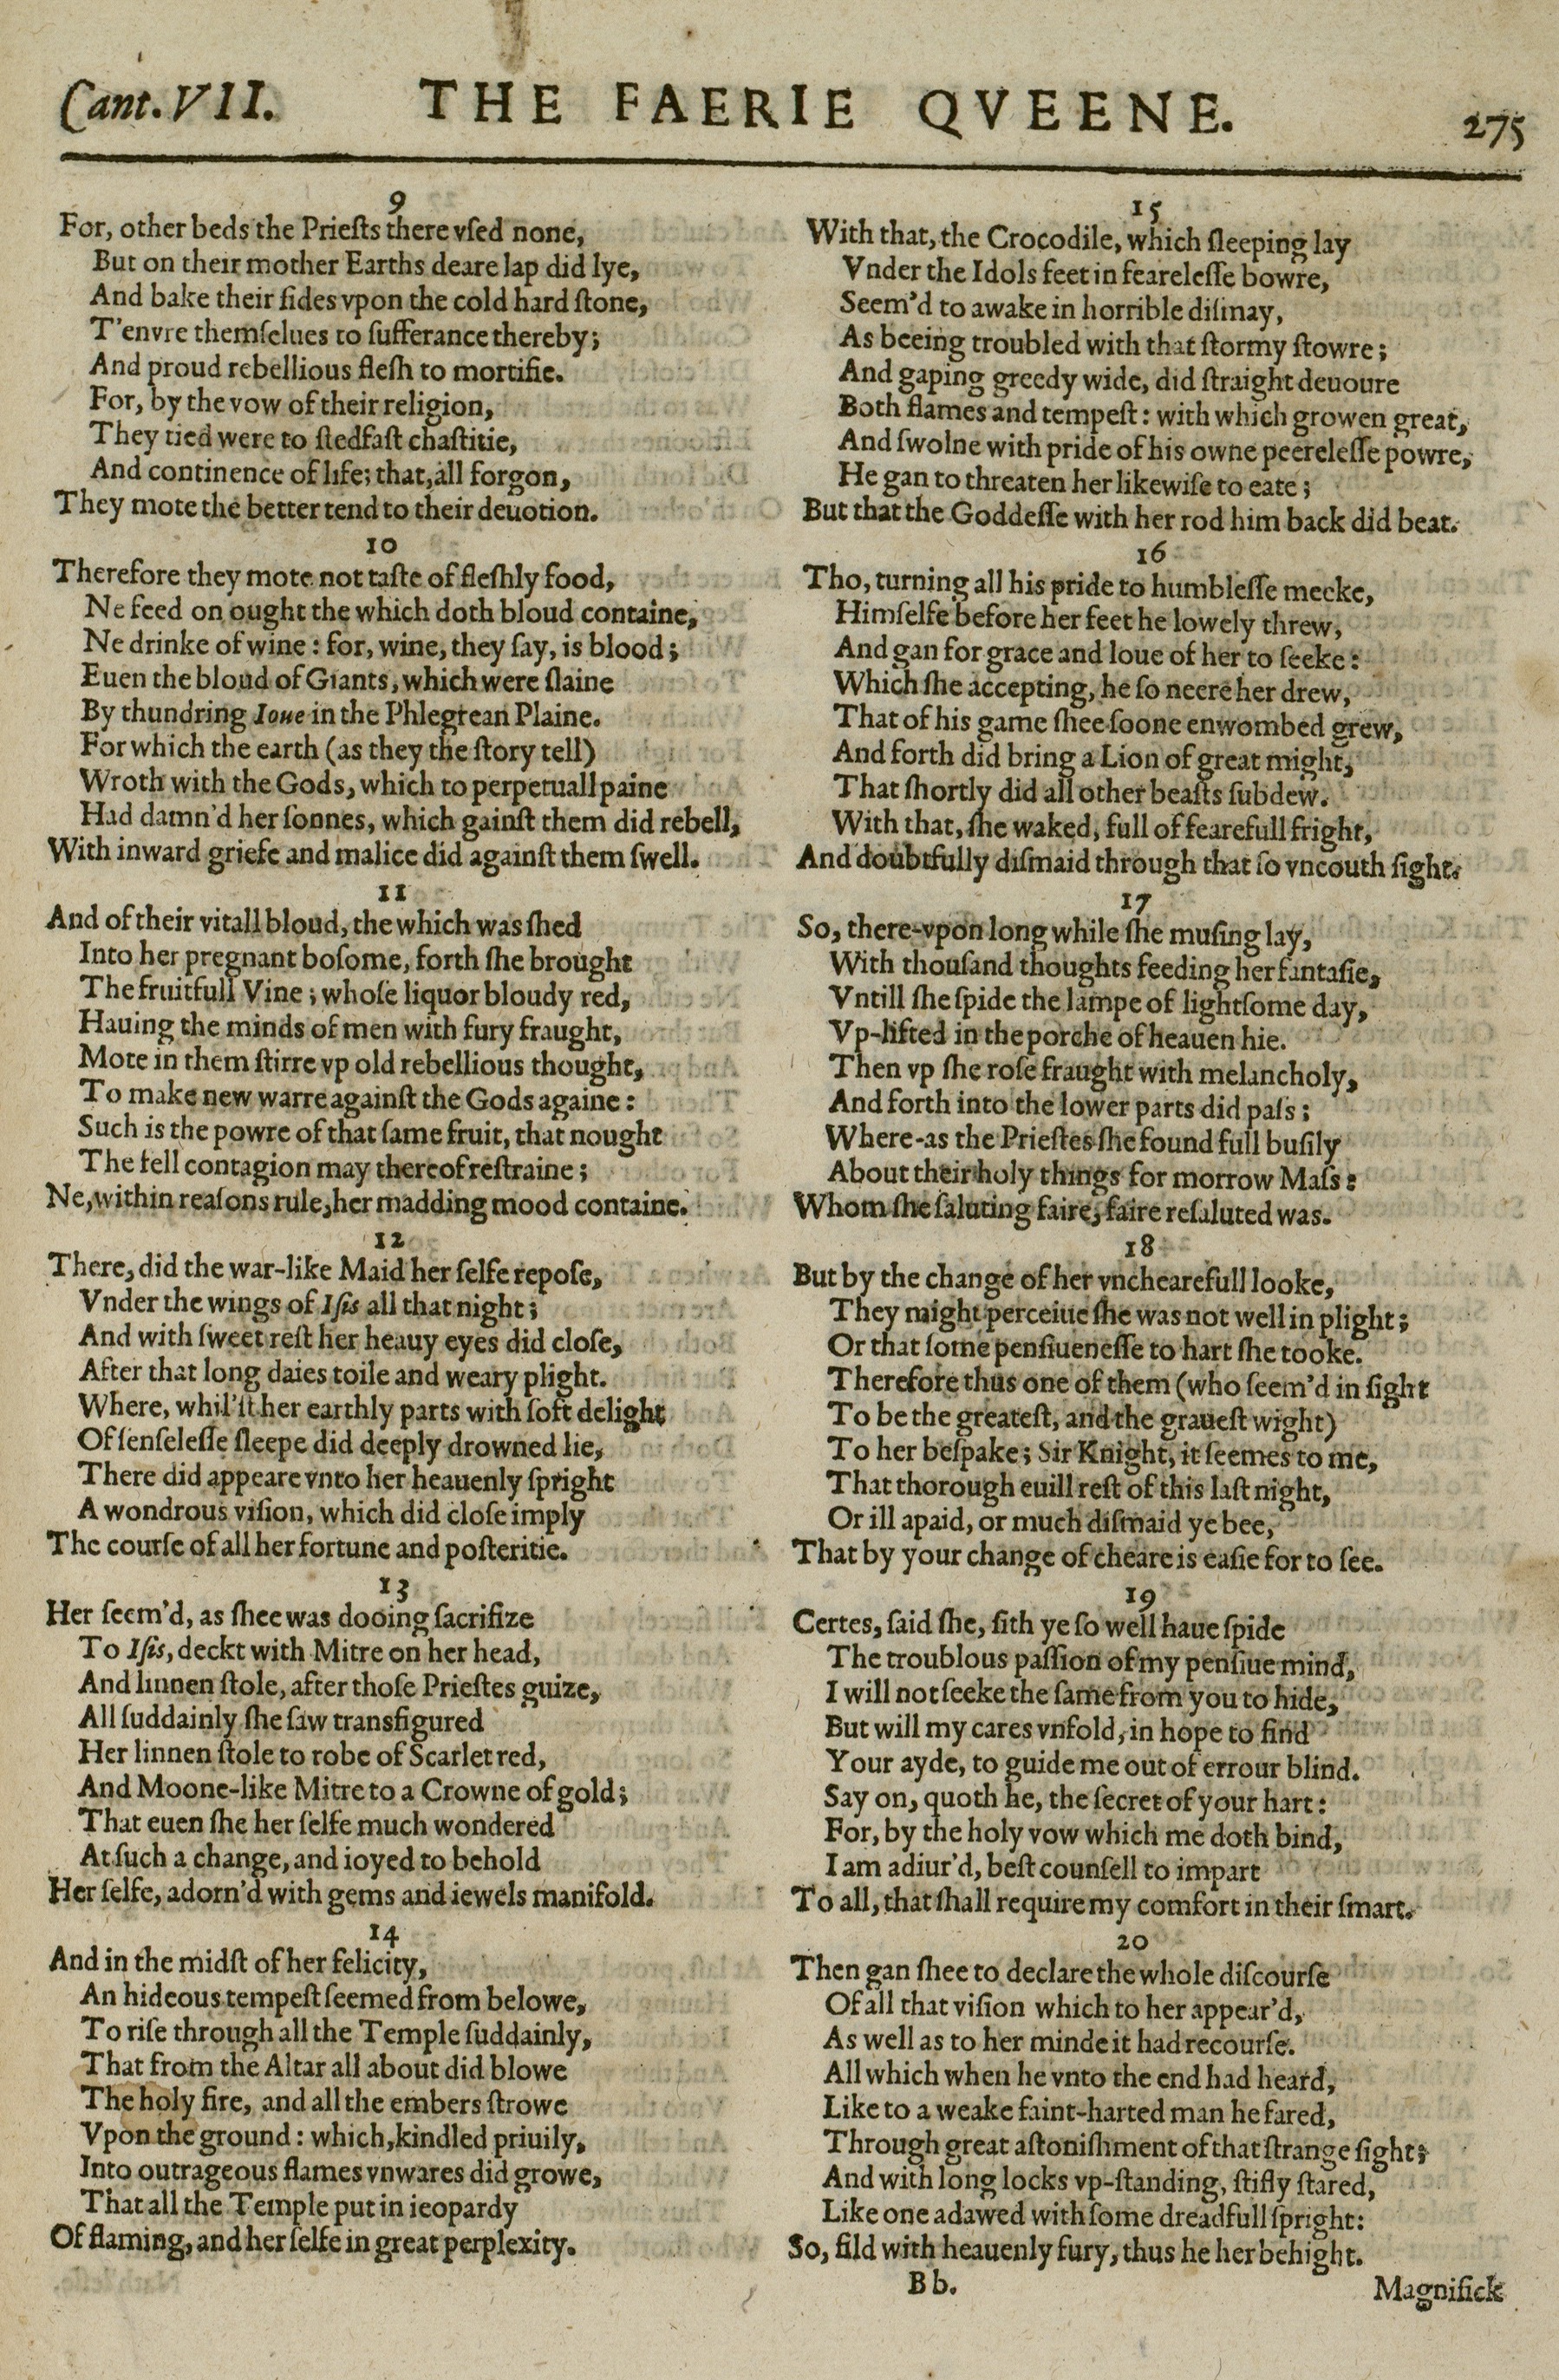 Cant. VII. THE FAERIE QVEENE. 275
9
For, other beds the Prieſts there vſed none,
But on their mother Earths deare lap did lye,
And bake their ſides vpon the cold hard ſtone,
T'envre themſelues to ſufferance thereby;
And proud rebellious fleſh to mortifie.
For, by the vow of their religion,
They tied were to ſtedfaſt chaſtitie,
And continence of life; that, all forgon,
They mote the better tend to their deuotion.
10
Therefore they mote not taſte of fleſhly food,
Ne feed on ought the which doth bloud containe,
Ne drinke of wine: for, wine, they ſay, is blood;
Euen the bloud of Giants, which were ſlaine
By thundring Ioue in the Phlegrean Plaine.
For which the earth (as they the ſtory tell)
Wroth with the Gods, which to perpetuall paine
Had damn'd her ſonnes, which gainſt them did rebell,
With inward griefe and malice did againſt them ſwell.
11
And of their vitall bloud, the which was ſhed
Into her pregnant boſome, forth ſhe brought
The fruitfull Vine; whoſe liquor bloudy red,
Hauing the minds of men with fury fraught,
Mote in them ſtirre vp old rebellious thought,
To make new warre againſt the Gods againe:
Such is the powre of that ſame fruit, that nought
The fell contagion may thereof reſtraine;
Ne, within reaſons rule, her madding mood containe.
12
There, did the war-like Maid her ſelfe repoſe,
Vnder the wings of Iſis all that night;
And with ſweet reſt her heauy eyes did cloſe,
After that long daies toile and weary plight.
Where, whil'ſt her earthly parts with ſoft delight
Of ſenſeleſſe ſleepe did deeply drowned lie,
There did appeare vnto her heauenly ſpright
A wondrous viſion, which did cloſe imply
The courſe of all her fortune and poſteritie.
13
Her ſeem'd, as ſhee was dooing ſacrifize
To Iſis, deckt with Mitre on her head,
And linnen ſtole, after thoſe Prieſtes guize,
All ſuddainly ſhe ſaw transfigured
Her linnen ſtole to robe of Scarlet red,
And Moone-like Mitre to a Crowne of gold;
That euen ſhe her ſelfe much wondered
At ſuch a change, and ioyed to behold
Her ſelfe, adorn'd with gems and iewels manifold.
14
And in the midſt of her felicity,
An hideous tempeſt ſeemed from belowe,
To riſe through all the Temple ſuddainly,
That from the Altar all about did blowe
The holy fire, and all the embers ſtrowe
Vpon the ground: which, kindled priuily,
Into outrageous flames vnwares did growe,
That all the Temple put in ieopardy
Of flaming, and her ſelfe in great perplexity.
15
With that, the Crocodile, which ſleeping lay
Vnder the Idols feet in feareleſſe bowre,
Seem'd to awake in horrible diſmay,
As beeing troubled with that ſtormy ſtowre;
And gaping greedy wide, did ſtraight deuoure
Both flames and tempeſt: with which growen great,
And ſwolne with pride of his owne peereleſſe powre,
He gan to threaten her likewiſe to eate;
But that the Goddeſſe with her rod him back did beat.
16
Tho, turning all his pride to humbleſſe meeke,
Himſelfe before her feet he lowely threw,
And gan for grace and loue of her to ſeeke:
Which ſhe accepting, he ſo neere her drew,
That of his game ſhee ſoone enwombed grew,
And forth did bring a Lion of great might,
That ſhortly did all other beaſts ſubdew.
With that, ſhe waked, full of fearefull fright,
And doubtfully diſmaid through that ſo vncouth ſight.
17
So, there-vpon long while ſhe muſing lay,
With thouſand thoughts feeding her fantaſie,
Vntill ſhe ſpide the lampe of lightſome day,
Vp-lifted in the porche of heauen hie.
Then vp ſhe roſe fraught with melancholy,
And forth into the lower parts did paſs;
Where-as the Prieſtes ſhe found full buſily
About their holy things for morrow Maſs:
Whom ſhe ſaluting faire, faire reſaluted was.
18
But by the change of her vnchearefull looke,
They might perceiue ſhe was not well in plight;
Or that ſome penſiueneſſe to hart ſhe tooke.
Therefore thus one of them (who ſeem'd in ſight
To be the greateſt, and the graueſt wight)
To her beſpake; Sir Knight, it ſeemes to me,
That thorough euill reſt of this laſt night,
Or ill apaid, or much diſmaid ye bee,
That by your change of cheare is eaſie for to ſee.
19
Certes, ſaid ſhe, ſith ye ſo well haue ſpide
The troublous paſſion of my penſiue mind,
I will not ſeeke the ſame from you to hide,
But will my cares vnfold, in hope to find
Your ayde, to guide me out of errour blind.
Say on, quoth he, the ſecret of your hart:
For, by the holy vow which me doth bind,
I am adiur'd, beſt counſell to impart
To all, that ſhall require my comfort in their ſmart.
20
Then gan ſhee to declare the whole diſcourſe
Of all that viſion which to her appear'd,
As well as to her minde it had recourſe.
All which when he vnto the end had heard,
Like to a weake faint-harted man he fared,
Through great aſtoniſhment of that ſtrange ſight;
And with long locks vp-ſtanding, ſtifly ſtared,
Like one adawed with ſome dreadfull ſpright:
So, fild with heauenly fury, thus he her behight.
Bb. Magnifick